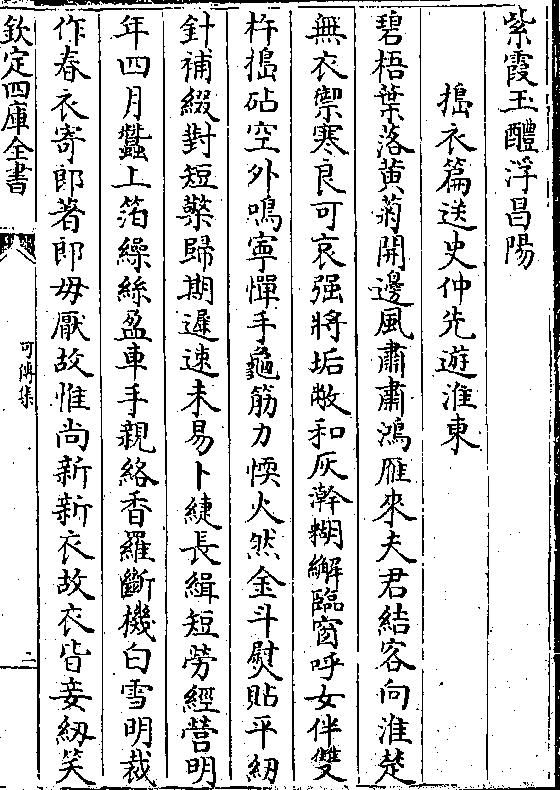 紫霞玉醴浮昌陽
擣衣篇送史仲先遊淮東
碧梧葉落黄菊開邊風肅肅鴻雁來夫君結客向淮楚
無衣禦寒良可哀强將垢敝和灰澣糊繲臨窗呼女伴雙
杵擣砧空外鳴寧憚手龜筋力愞火然金斗熨貼平紉
針補綴對短檠歸期遲速未易卜緁長緝短勞經營明
年四月蠶上箔繰絲盈車手親絡香羅斷機白雪明裁
作春衣寄郎著郎毋厭故惟尚新新衣故衣皆妾紉笑
欽定四庫全書
可傳集
二